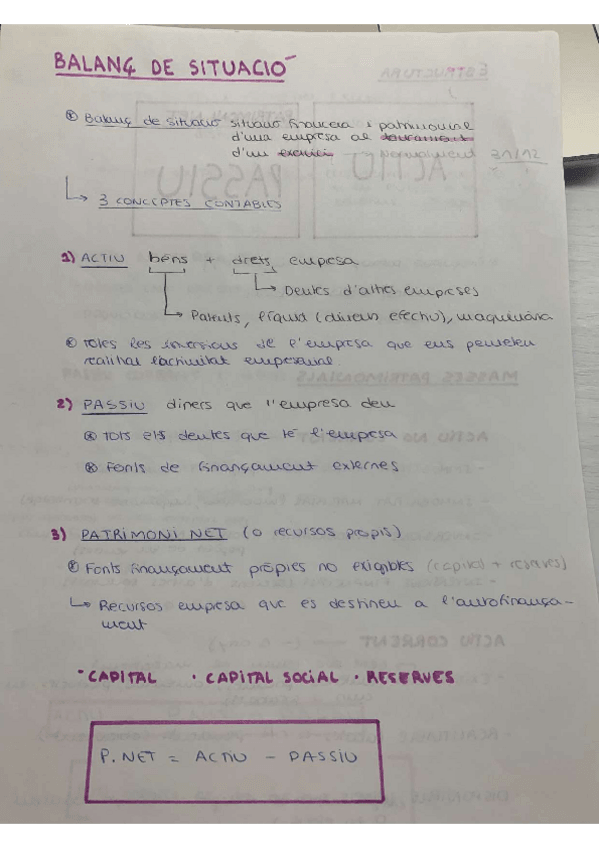 BALANÇ DE SITUACIÓ
Balanç de situació situació financera i patrimonial
d'una empresa al
d'un exercici normalment 31/12
3 CONCEPTES CONTABLES
1) ACTIU bens + drets empresa
Deutes d'altres empreses
Patents, líquid (diners efectiu), maquinària
Totes les inversions de l'empresa que ens permeten
realitzar l'activitat empresarial.
2) PASSIU diners que l'empresa deu
Tots els deutes que té l'empesa
Fonts de finançament externes
3) PATRIMONI NET (o recursos propis)
Fonts finançament pròpies no exigibles (capital + reserves)
Recursos empresa que es destinen a l'autofinança-
ment
· CAPITAL · CAPITAL SOCIAL · RESERVES
P. NET = ACTIU - PASSIU